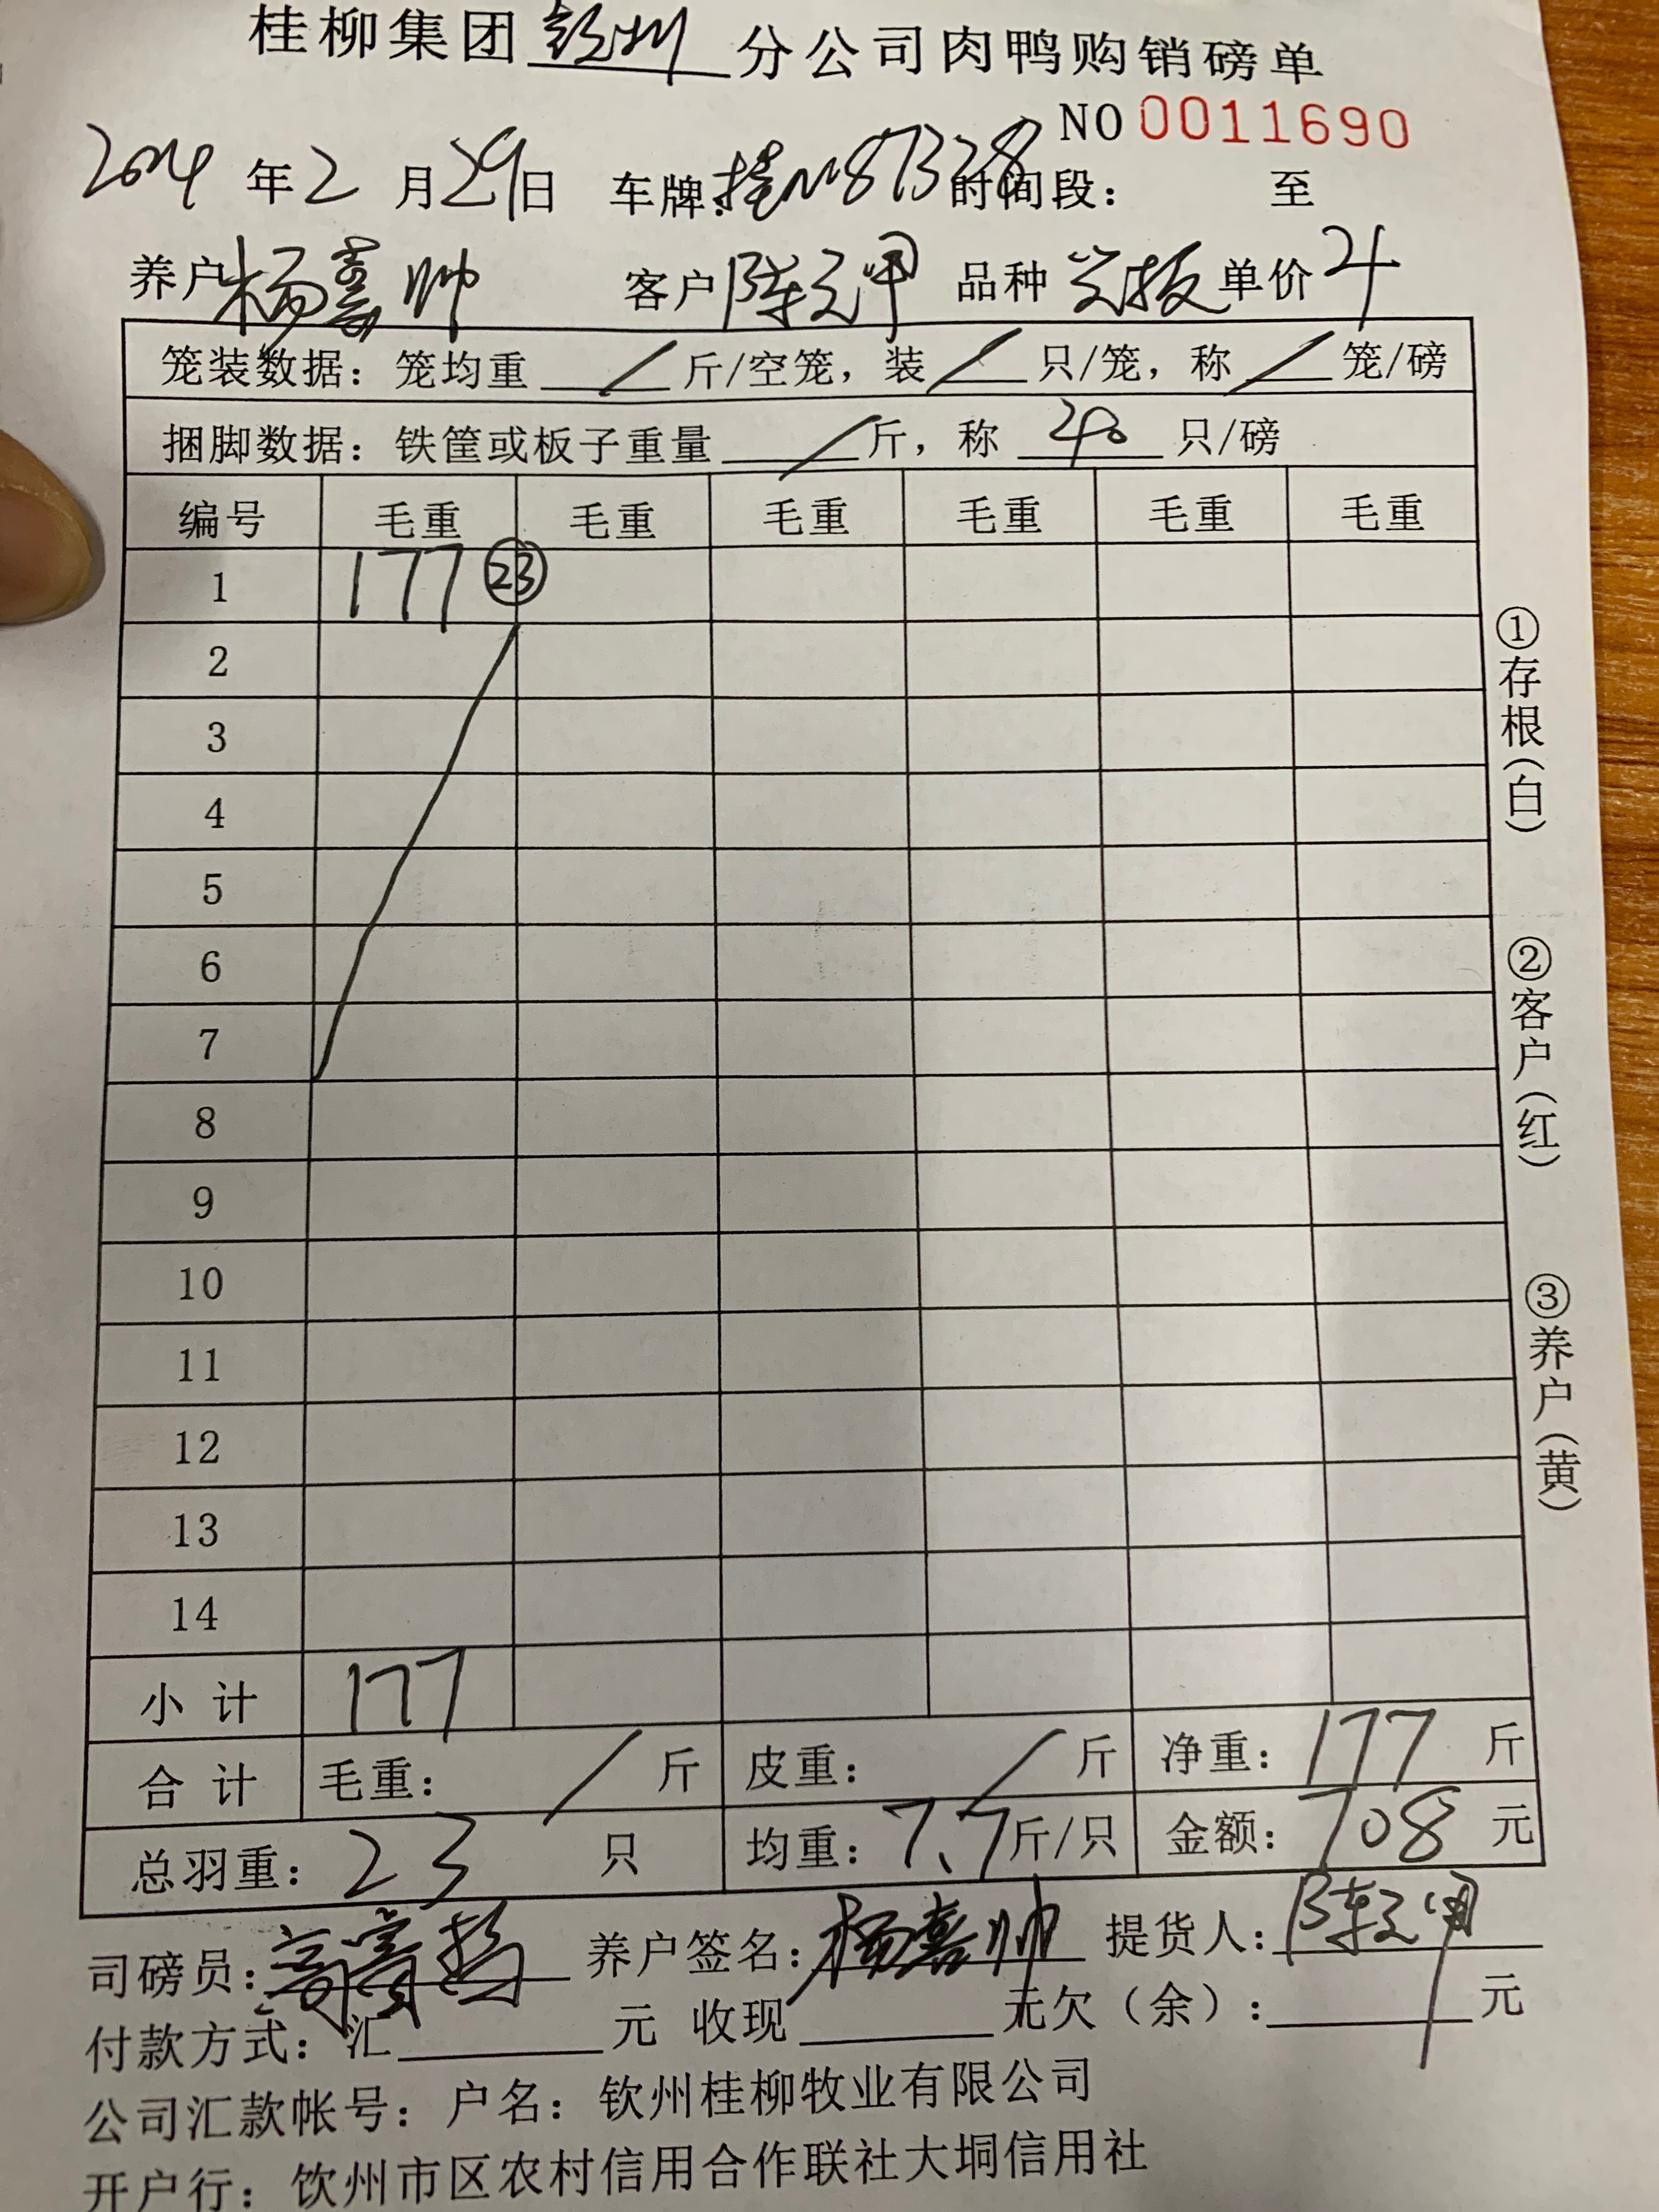 桂柳集团钦州分公司肉鸭购销磅单
NO 0011690
2024年2月29日 车牌:桂N87328 时间段: 至
养户 杨喜帅 客户 陈 品种 单价 4
笼装数据:笼均重 / 斤/空笼,装 / 只/笼,称 / 笼/磅
捆脚数据:铁筐或板子重量 / 斤,称 40 只/磅
编号 毛重 毛重 毛重 毛重 毛重 毛重
1 177 ㉓
2
3
4
5
6
7
8
9
10
11
12
13
14
小计 177
合计 毛重: / 斤 皮重: / 斤 净重:177 斤
总羽重:23 只 均重:7.7斤/只 金额:708 元
司磅员: 养户签名:杨喜帅 提货人:陈
付款方式:汇 元 收现 元欠(余): 元
公司汇款帐号:户名:钦州桂柳牧业有限公司
开户行:钦州市区农村信用合作联社大垌信用社
①存根(白)
②客户(红)
③养户(黄)